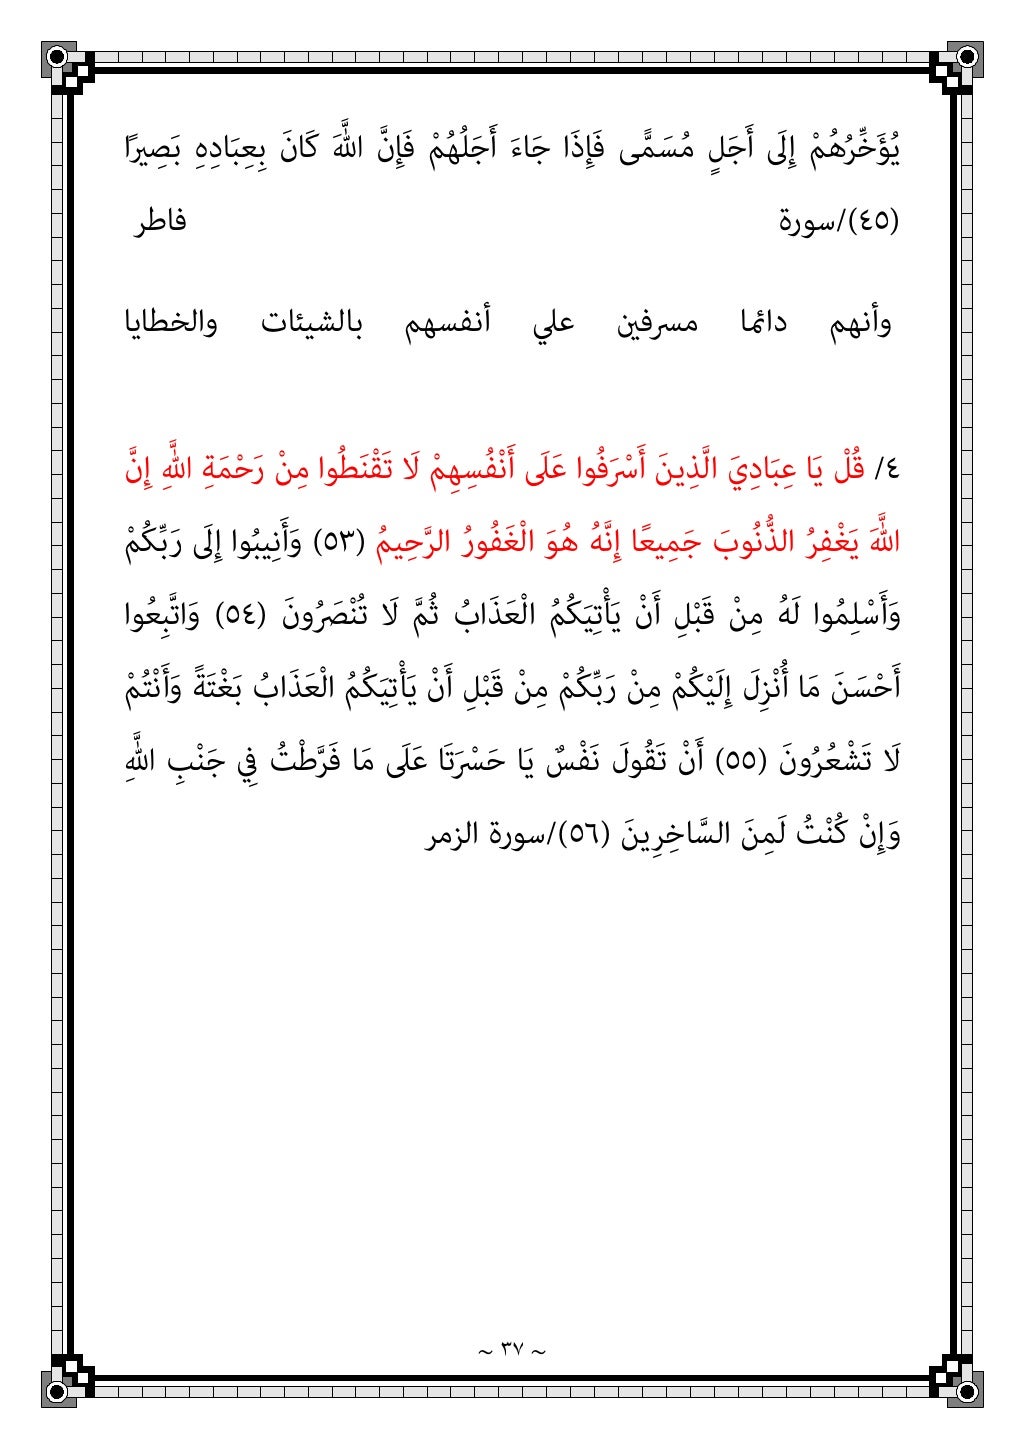 يُؤَخِّرُهُمْ إِلَى أَجَلٍ مُسَمًّى فَإِذَا جَاءَ أَجَلُهُمْ فَإِنَّ اللَّهَ كَانَ بِعِبَادِهِ بَصِيرًا
(٤٥)/سورة فاطر
وأنهم دائما مسرفين علي أنفسهم بالشيئات والخطايا
٤/ قُلْ يَا عِبَادِيَ الَّذِينَ أَسْرَفُوا عَلَى أَنْفُسِهِمْ لَا تَقْنَطُوا مِنْ رَحْمَةِ اللَّهِ إِنَّ
اللَّهَ يَغْفِرُ الذُّنُوبَ جَمِيعًا إِنَّهُ هُوَ الْغَفُورُ الرَّحِيمُ (٥٣) وَأَنِيبُوا إِلَى رَبِّكُمْ
وَأَسْلِمُوا لَهُ مِنْ قَبْلِ أَنْ يَأْتِيَكُمُ الْعَذَابُ ثُمَّ لَا تُنْصَرُونَ (٥٤) وَاتَّبِعُوا
أَحْسَنَ مَا أُنْزِلَ إِلَيْكُمْ مِنْ رَبِّكُمْ مِنْ قَبْلِ أَنْ يَأْتِيَكُمُ الْعَذَابُ بَغْتَةً وَأَنْتُمْ
لَا تَشْعُرُونَ (٥٥) أَنْ تَقُولَ نَفْسٌ يَا حَسْرَتَا عَلَى مَا فَرَّطْتُ فِي جَنْبِ اللَّهِ
وَإِنْ كُنْتُ لَمِنَ السَّاخِرِينَ (٥٦)/سورة الزمر
~ ٣٧ ~